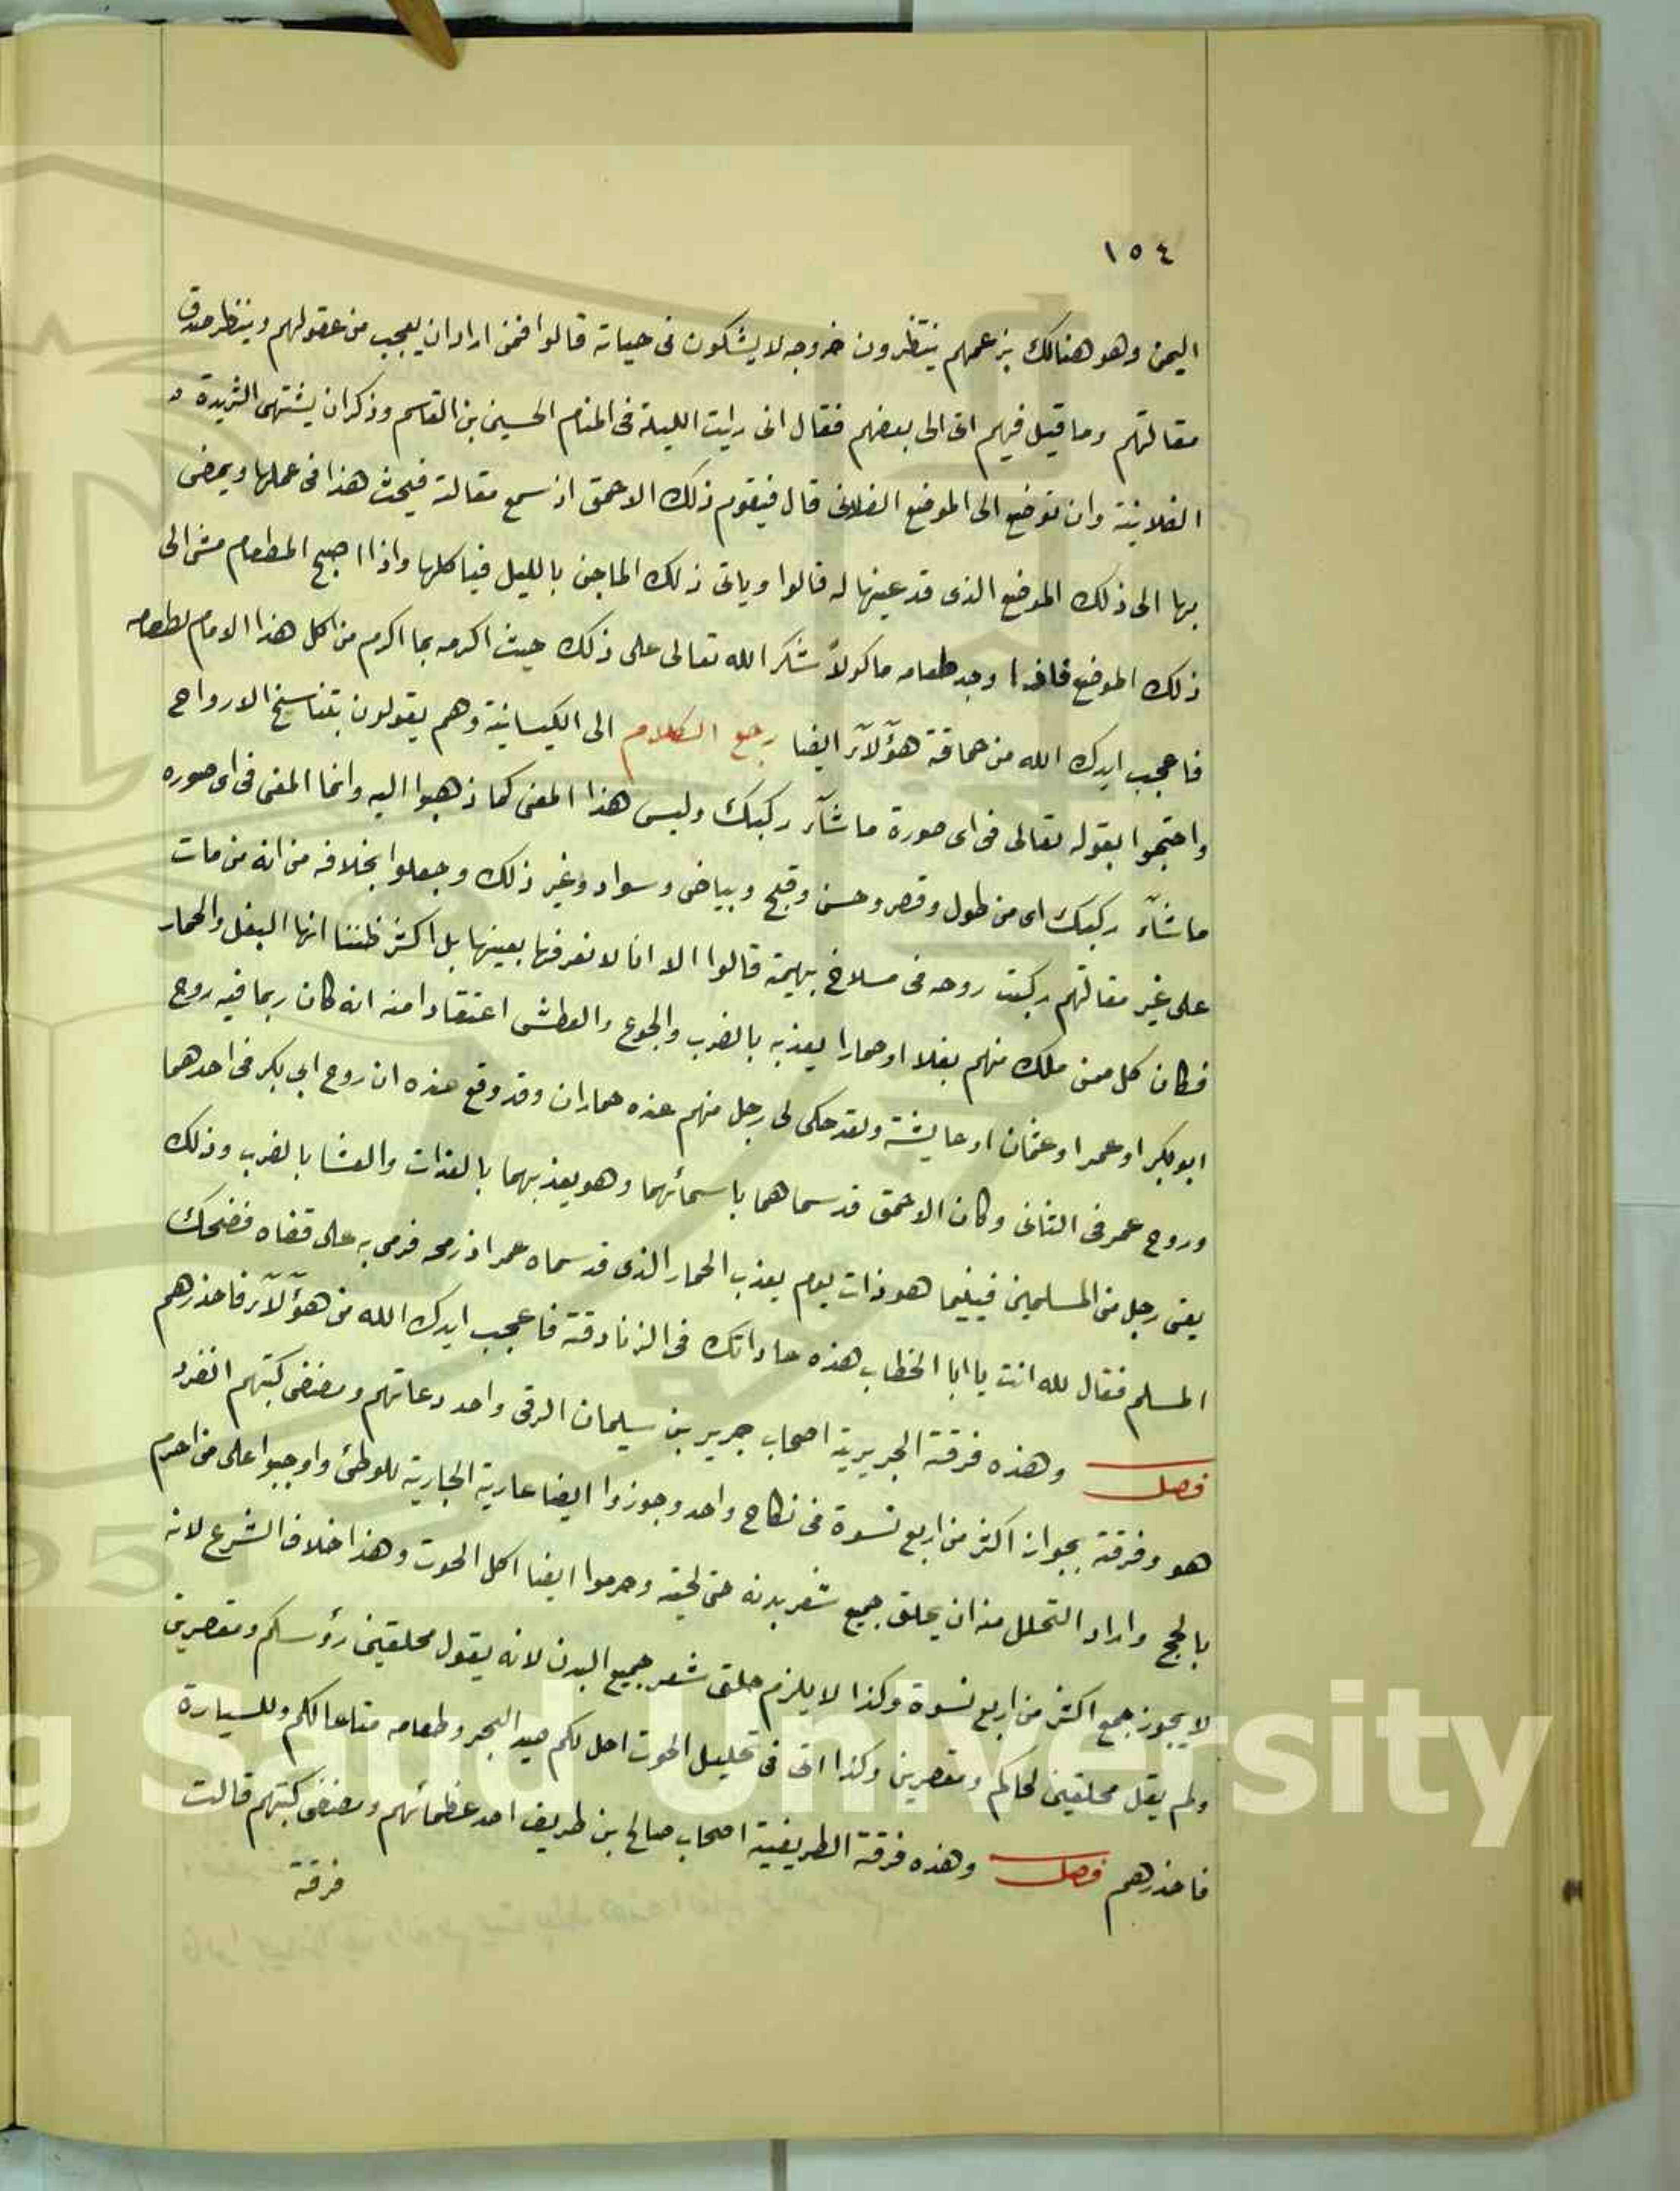 ١٥٤
اليمن وهو هنالك بزعمهم ينتظرون خروجه لا يشكون فى حياته قالوا فمن اراد ان يعجب من عقولهم وينظر صدق
مقالتهم وما قيل فيهم اتى الى بعضهم فقال انى رايت الليلة فى المنام الحسين بن القاسم وذكر ان يشتهى الثريدة
الفلانية وان توضع الى الموضع الفلانى قال فيقوم ذلك الاحمق اذ سمع مقالته فيحث هذا فى عملها ويمضى
بها الى ذلك الموضع الذى قد عينها له قالوا وياتى ذلك الماجن بالليل فياكلها واذا اصبح المطعام مشى الى
ذلك الموضع فاذا وجد طعامه ماكولاً شكر الله تعالى على ذلك حيث اكرمه بما اكرم من اكل هذا الامام لطعامه
فاعجب ايدك الله من حماقة هؤلآء ايضا رجع الكلام الى الكيسانية وهم يقولون بتناسخ الارواح
واحتجوا بقوله تعالى فى اى صورة ما شآء ركبك وليس هذا المعنى كما ذهبوا اليه وانما المعنى فى اى صوره
ما شآء ركبك اى من طول وقصر وحسن وقبح وبياض وسواد وغير ذلك وجعلوا بخلافه من انه من مات
على غير مقالتهم ركبت روحه فى مسلاخ بهيمة قالوا الا انا لا نعرفها بعينها بل اكثر ظننا انها البغل والحمار
فكان كل من ملك منهم بغلا او حمارا يعذبه بالضرب والجوع والعطش اعتقادا منه انه كان ربما فيه روح
ابو بكر او عمر او عثمان او عايشة ولقد حكى لى رجل منهم عنده حماران وقد وقع عنده ان روح ابي بكر فى احدهما
وروح عمر فى الثانى وكان الاحمق قد سماهما باسمائهما وهو يعذبهما بالغدات والعشا بالضرب وذلك
يعنى رجل من المسلمين فبينما هو ذات يوم يعذب الحمار الذى قد سماه عمر اذ رمحه فرمى به على قفاه فضحك
المسلم فقال لله انت يا ابا الخطاب هذه عاداتك فى الزنادقة فاعجب ايدك الله من هؤلآء فاحذرهم
فصل وهذه فرقة الجريرية اصحاب جرير بن سليمان الرقى واحد دعاتهم ومصنفى كتبهم انفرد
هو وفرقته بجواز اكثر من اربع نسوة فى نكاح واحد وجوزوا ايضا عارية الجارية للوطئ واوجبوا على من احرم
بالحج واراد التحلل منه ان يحلق جميع شعر بدنه حتى لحيته وحرموا ايضا اكل الحوت وهذا خلاف الشرع لانه
لا يجوز جمع اكثر من اربع نسوة وكذا لا يلزم حلق شعر جميع البدن لانه يقول محلقين رؤسكم ومقصرين
ولم يقل محلقين لحاكم ومقصرين وكذا اتى فى تحليل الحوت احل لكم صيد البحر وطعامه متاعا لكم وللسيارة
فاحذرهم فصل وهذه فرقة الطريفية اصحاب صالح بن طريف احد عظمائهم ومصنفى كتبهم قالت
فرقة
g Saud University